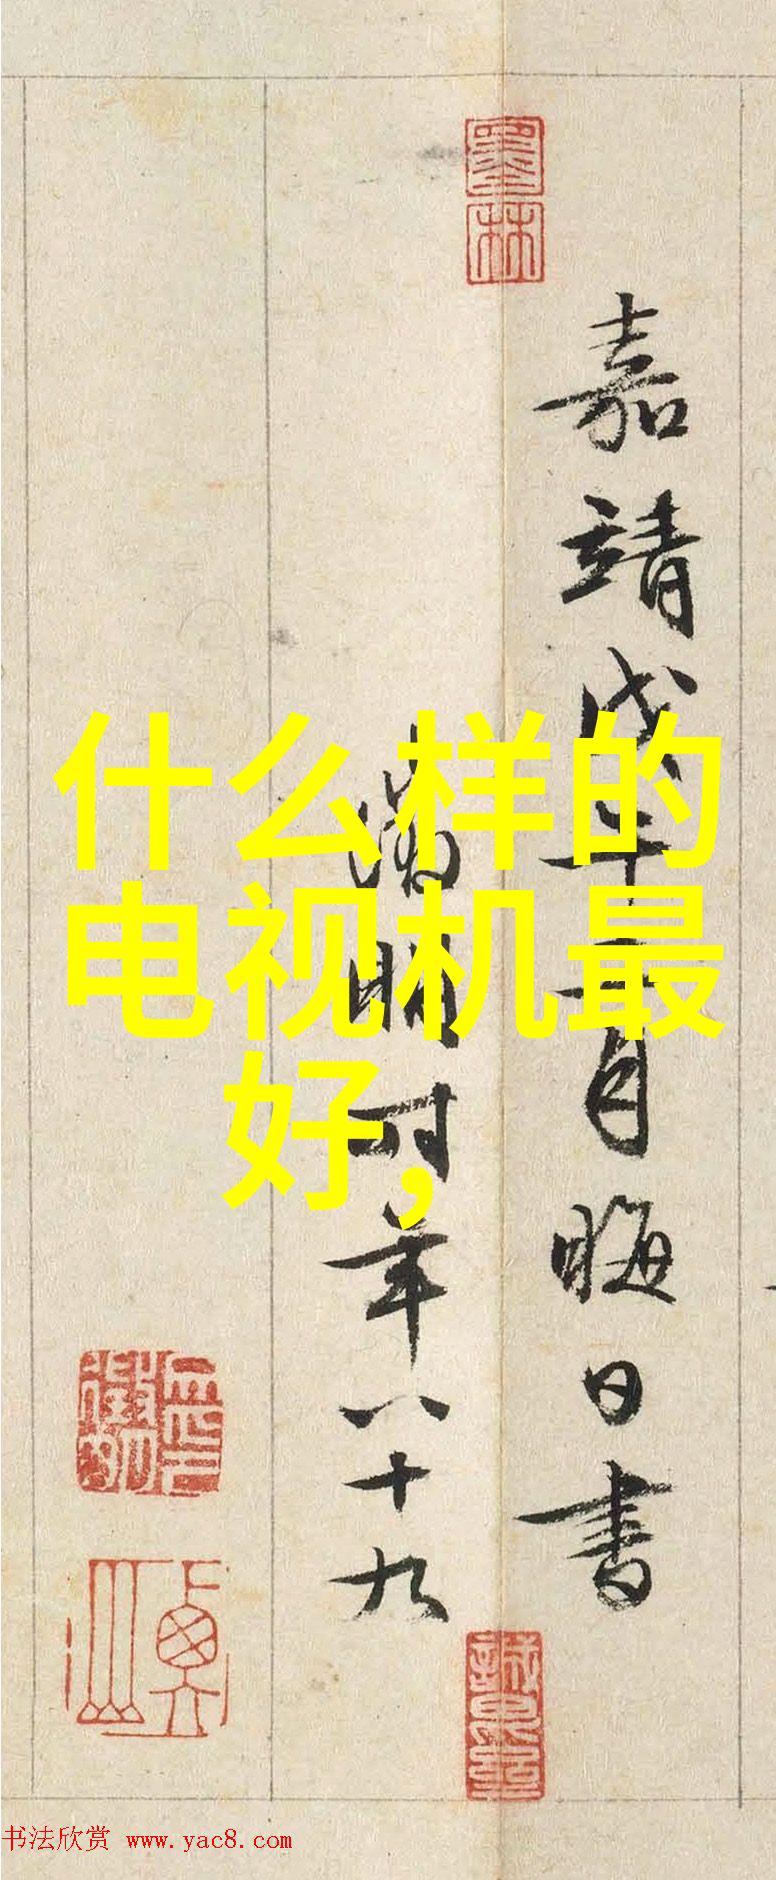 什么样的
电视机最
好,
墨林
嘉靖戊午月晦日書
徵明时年八十九
书法欣赏 www.yac8.com